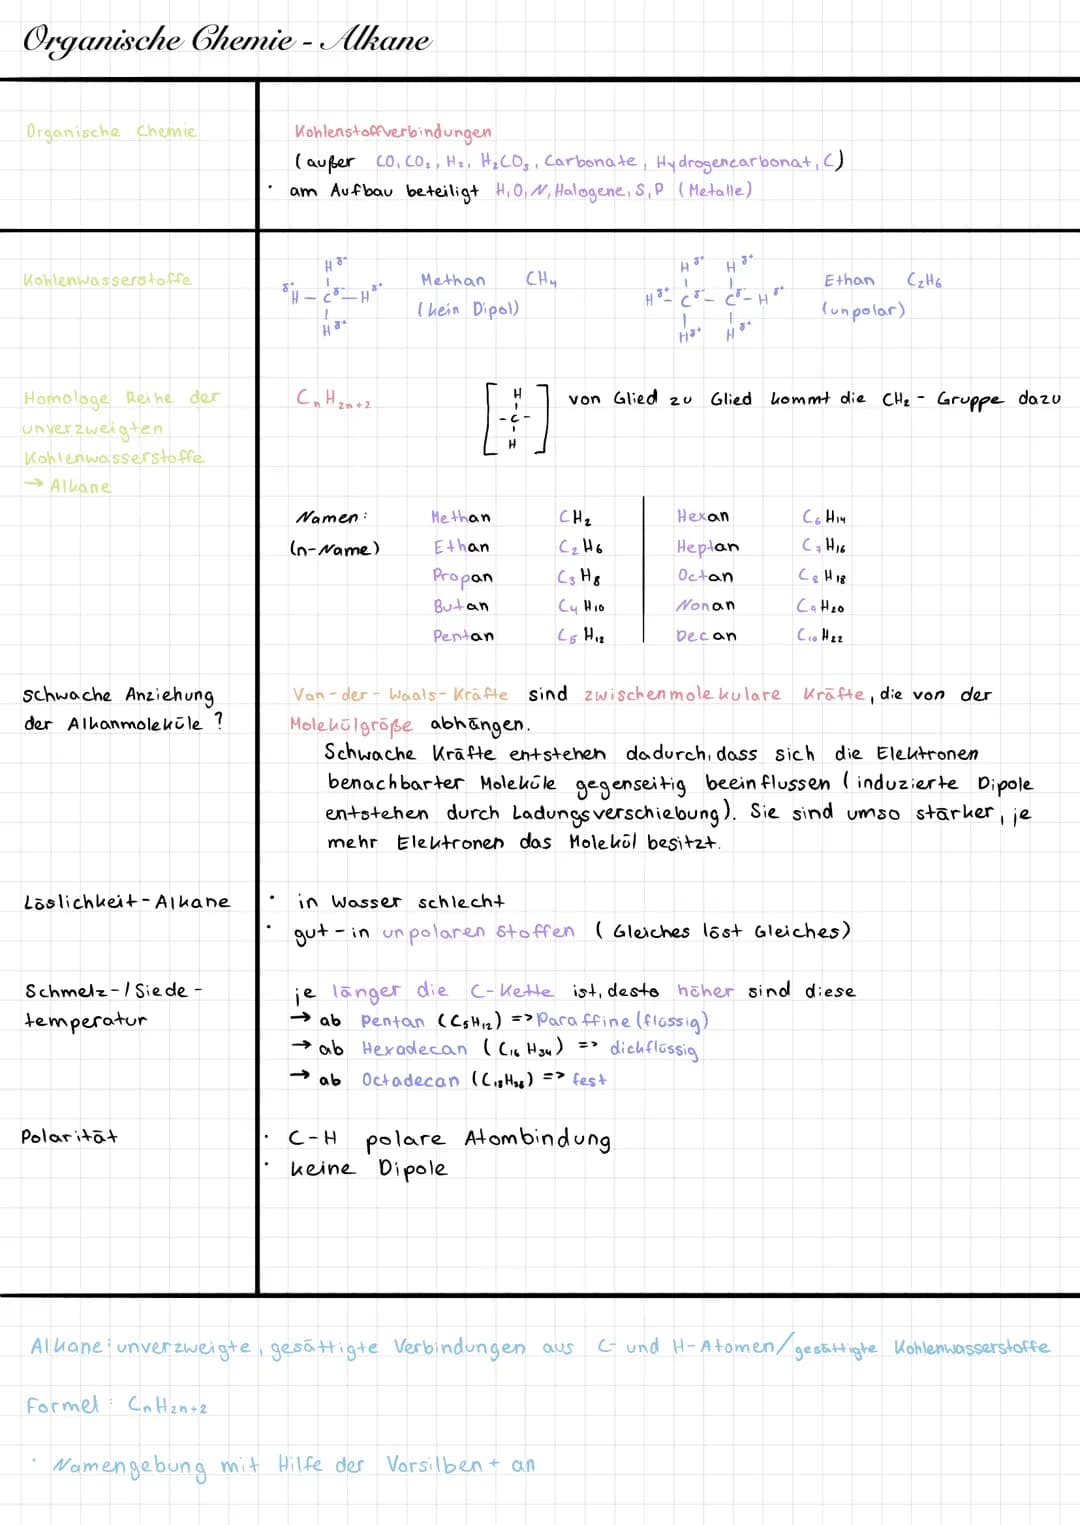 Organische Chemie - Alkane
Organische Chemie
Kohlenstoffverbindungen
(außer CO, CO₂, H₂, H₂CO₃, Carbonate, Hydrogencarbonat, C)
· am Aufbau beteiligt H, O, N, Halogene, S, P (Metalle)
Kohlenwasserstoffe
H δ+
δ+ H - C δ- - H δ+
H δ+
Methan CH₄
(kein Dipol)
H δ+ H δ+
H δ+ - C δ- - C δ- - H δ+
H δ+ H δ+
Ethan C₂H₆
(unpolar)
Homologe Reihe der
unverzweigten
Kohlenwasserstoffe
→ Alkane
CₙH₂ₙ₊₂
H
- C -
H
von Glied zu Glied kommt die CH₂ - Gruppe dazu
Namen: Methan CH₂ Hexan C₆H₁₄
(n-Name) Ethan C₂H₆ Heptan C₇H₁₆
Propan C₃H₈ Octan C₈H₁₈
Butan C₄H₁₀ Nonan C₉H₂₀
Pentan C₅H₁₂ Decan C₁₀H₂₂
schwache Anziehung
der Alkanmoleküle?
Van-der-Waals-Kräfte sind zwischenmolekulare Kräfte, die von der
Molekülgröße abhängen.
Schwache Kräfte entstehen dadurch, dass sich die Elektronen
benachbarter Moleküle gegenseitig beeinflussen (induzierte Dipole
entstehen durch Ladungsverschiebung). Sie sind umso stärker, je
mehr Elektronen das Molekül besitzt.
Löslichkeit-Alkane
· in Wasser schlecht
· gut - in unpolaren Stoffen (Gleiches löst Gleiches)
Schmelz-/Siede-
temperatur
je länger die C-Kette ist, desto höher sind diese
→ ab Pentan (C₅H₁₂) => Paraffine (flüssig)
→ ab Hexadecan (C₁₆H₃₄) => dickflüssig
→ ab Octadecan (C₁₈H₃₈) => fest
Polarität
· C-H polare Atombindung
· keine Dipole
Alkane: unverzweigte, gesättigte Verbindungen aus C- und H-Atomen/gesättigte Kohlenwasserstoffe
Formel: CₙH₂ₙ₊₂
· Namengebung mit Hilfe der Vorsilben + an